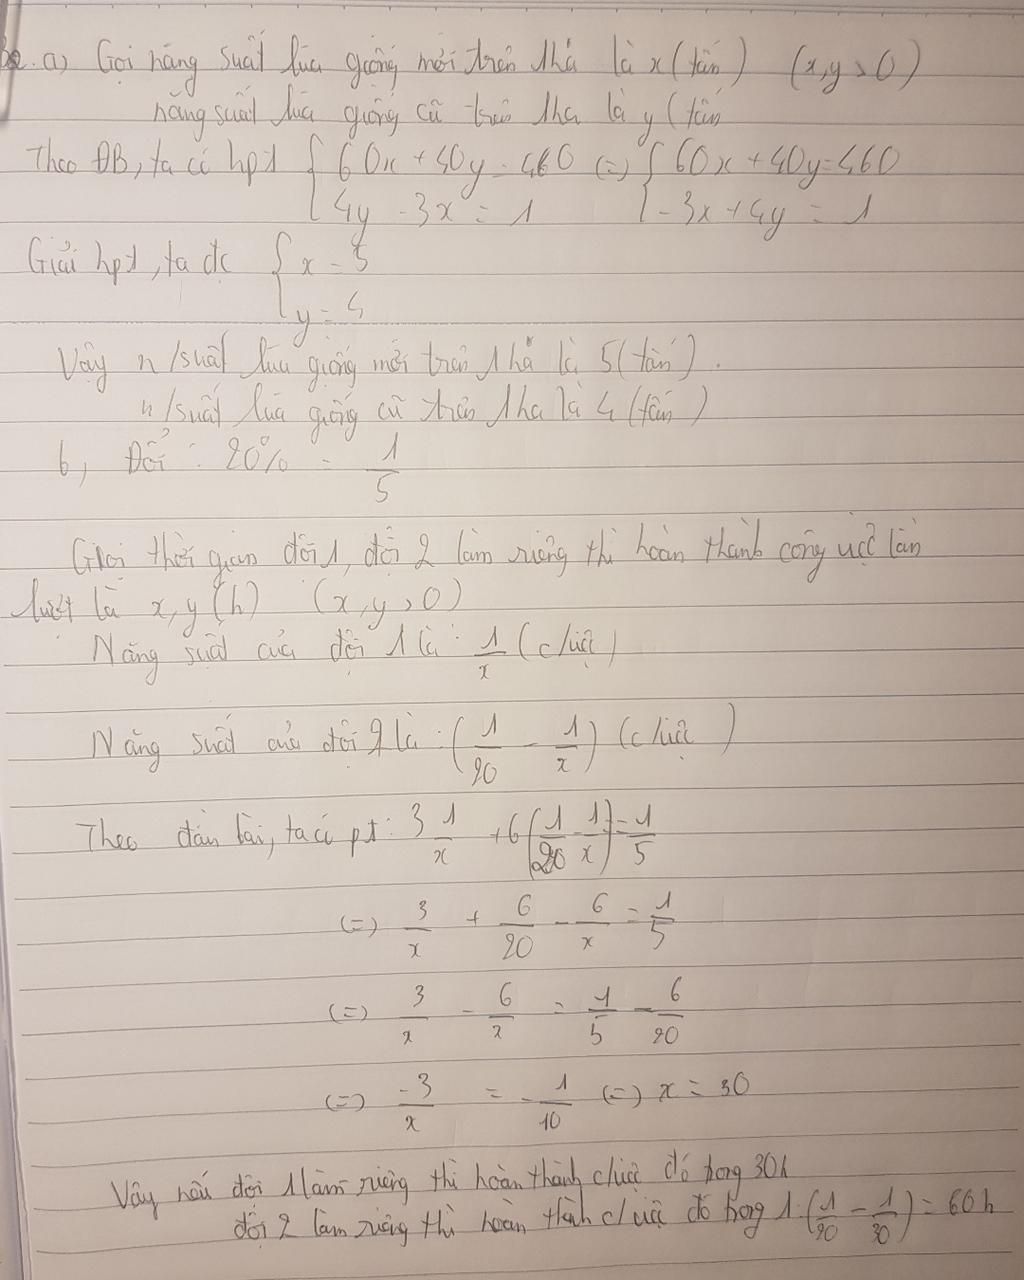 a) Gọi năng suất lúa giống mới trên 1ha là x (tấn) (x,y > 0)
năng suất lúa giống cũ trên 1ha là y (tấn
Theo ĐB, ta có hpt { 60x + 40y = 460 (=) { 60x + 40y = 460
4y - 3x = 1 - 3x + 4y = 1
Giải hpt, ta đc { x = 5
y = 4
Vậy n/suất lúa giống mới trên 1ha là 5 (tấn).
n/suất lúa giống cũ trên 1ha là 4 (tấn)
b, Đổi : 20% = 1/5
Gọi thời gian đội 1, đội 2 làm riêng thì hoàn thành công việc lần
lượt là x, y (h) (x, y > 0)
Năng suất của đội 1 là : 1/x (c/việc)
Năng suất của đội 2 là : (1/20 - 1/x) (c/việc)
Theo đầu bài, ta có pt : 3 1/x + 6 (1/20 - 1/x) = 1/5
(=) 3/x + 6/20 - 6/x = 1/5
(=) 3/x - 6/x = 1/5 - 6/20
(=) -3/x = -1/10 (=) x = 30
Vậy nếu đội 1 làm riêng thì hoàn thành c/việc đó trong 30h
đội 2 làm riêng thì hoàn thành c/việc đó trong 1:(1/20 - 1/30) = 60h